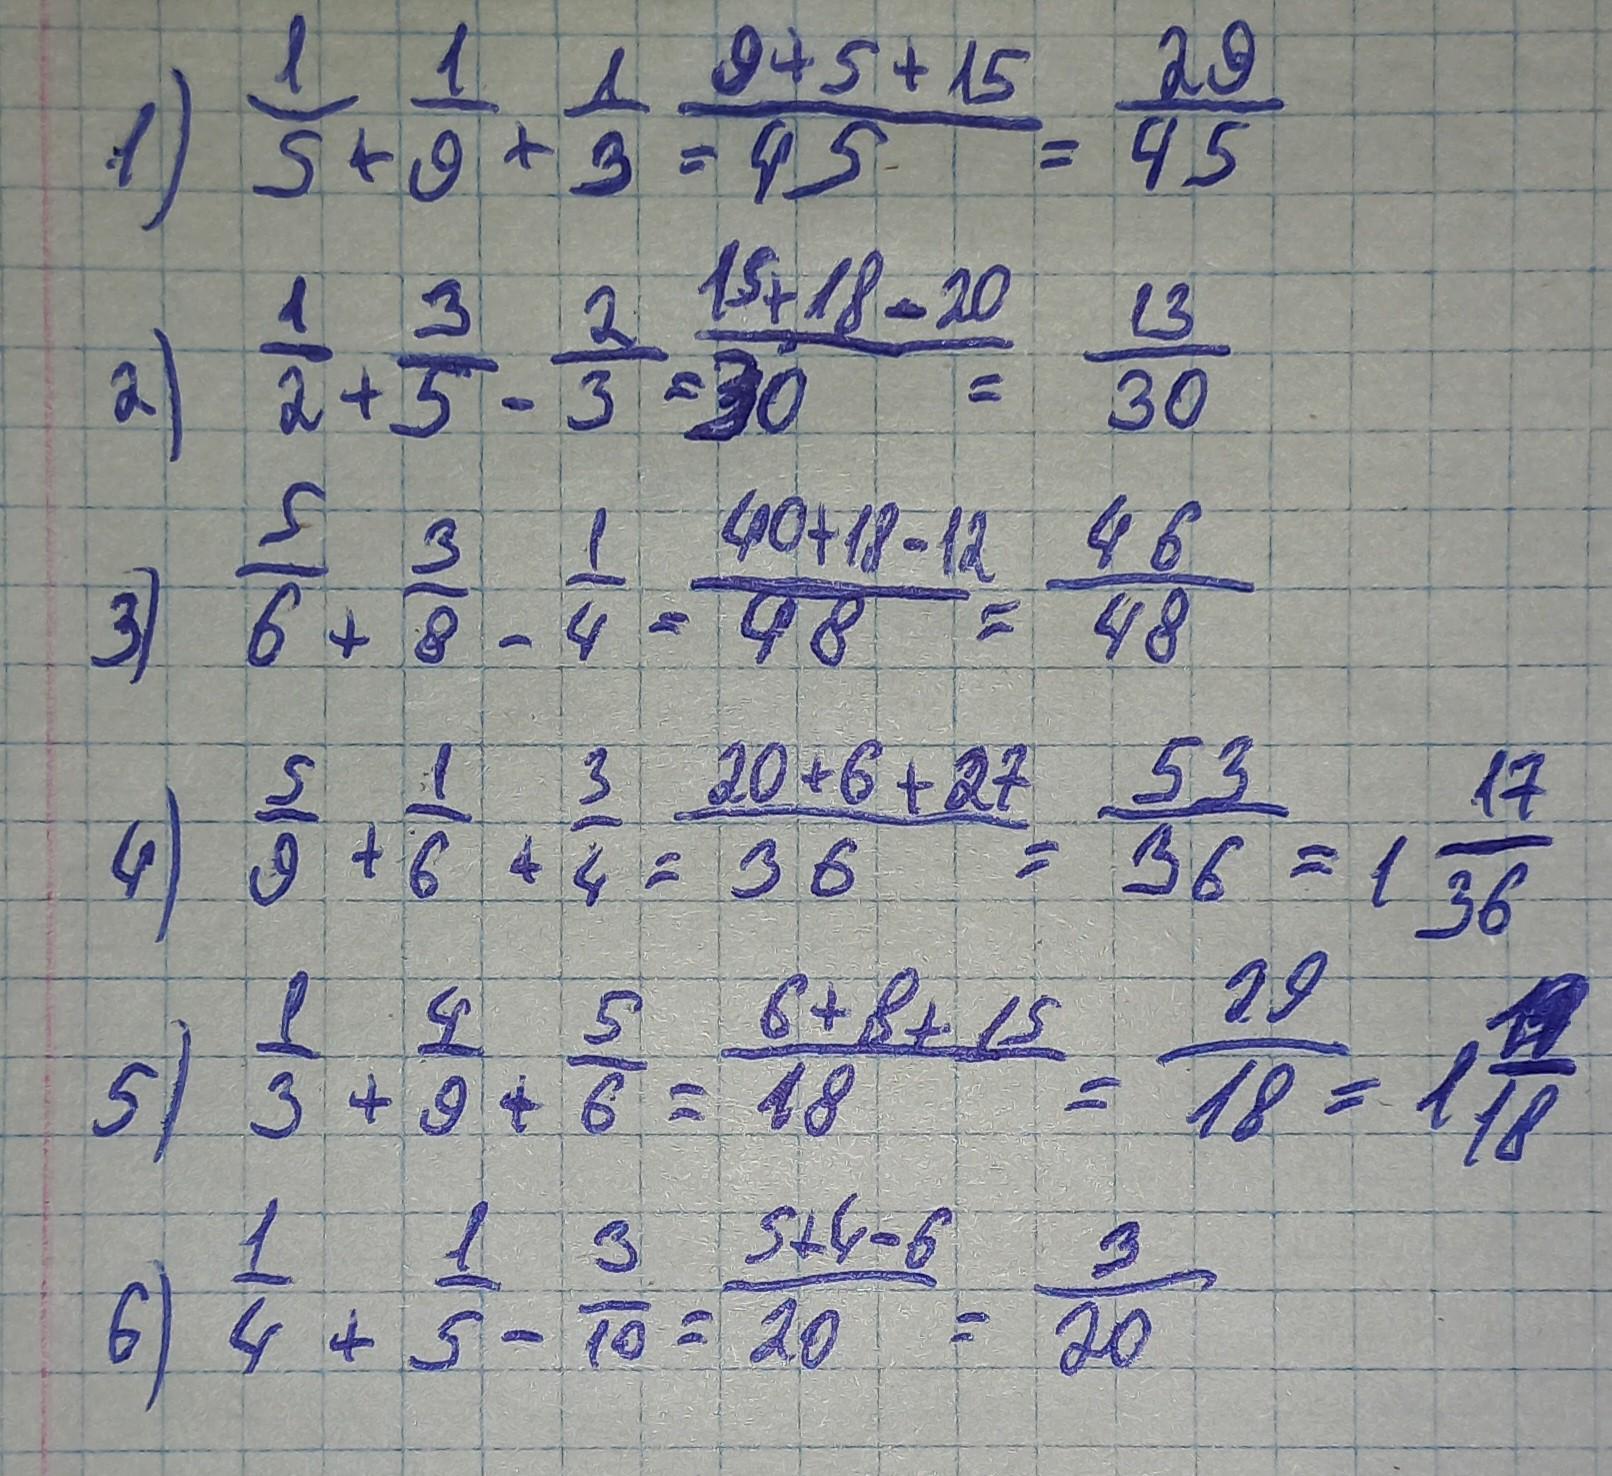 1) 1/5 + 1/9 + 1/3 = (9+5+15)/45 = 29/45
2) 1/2 + 3/5 - 2/3 = (15+18-20)/30 = 13/30
3) 5/6 + 3/8 - 1/4 = (40+18-12)/48 = 46/48
4) 5/9 + 1/6 + 3/4 = (20+6+27)/36 = 53/36 = 1 17/36
5) 1/3 + 4/9 + 5/6 = (6+8+15)/18 = 29/18 = 1 11/18
6) 1/4 + 1/5 - 3/10 = (5+4-6)/20 = 3/20